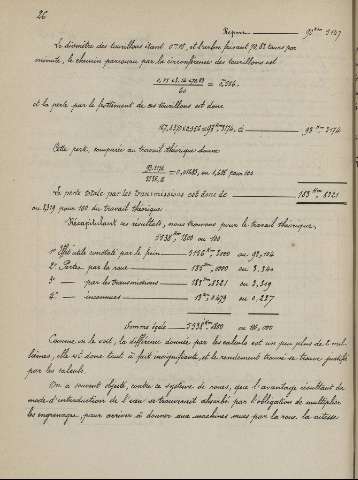 26
Report 90 km 5147
Le diamètre des tourillons étant 0.18, et l'arbre faisant 10.83 tours par
minute, le chemin parcouru par la circonférence des tourillons est
60
et la perte par le frottement de ces tourillons est donc
93 km 3174
Cette perte, comparée au travail théorique donne
= 0,01685, ou 1,685 pour 100
La perte totale par les transmissions est donc de 183 km, 8321
ou 3,319 pour 100 du travail théorique.
Récapitulant ces résultats, nous trouvons pour le travail théorique,
5538 km, 1800 ou 100
1° Effet utile constaté par le frein 5156 km, 2000 ou 93,104
2° Pertes par la roue 185 km, 1000 ou 3.340
3° — par les transmissions 183 km, 8321 ou 3,319
4° — inconnues 13 km, 0479 ou 0,237
Somme égale 5538 km 1800 ou 100,000
Comme on le voit, la différence donnée par les calculs est un peu plus de 2 mil-
lièmes, elle est donc tout à fait insignifiante, et le rendement trouvé se trouve justifié
par les calculs.
On a souvent objecté, contre ce système de roues, que l'avantage résultant du
mode d'introduction de l'eau se trouverait absorbé par l'obligation de multiplier
les engrenages, pour arriver à donner aux machines mues par la roue la vitesse